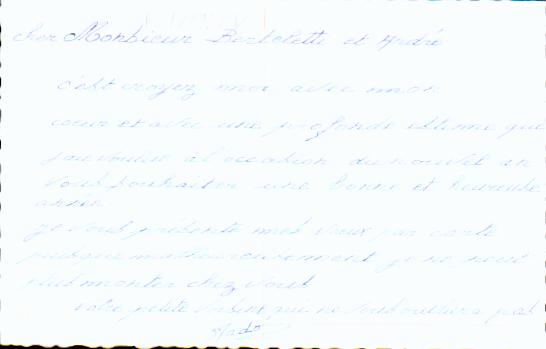 Cher Monsieur Bertolette et André
c'est croyez moi avec mon
coeur et avec une profonde estime que
j'ai voulue à l'occasion du nouvel an
vous souhaiter une bonne et heureuse
année
je vous présente mes vœux par carte
puisque malheureusement je ne peux
plus monter chez vous
votre petite voisine qui ne vous oubliera pas